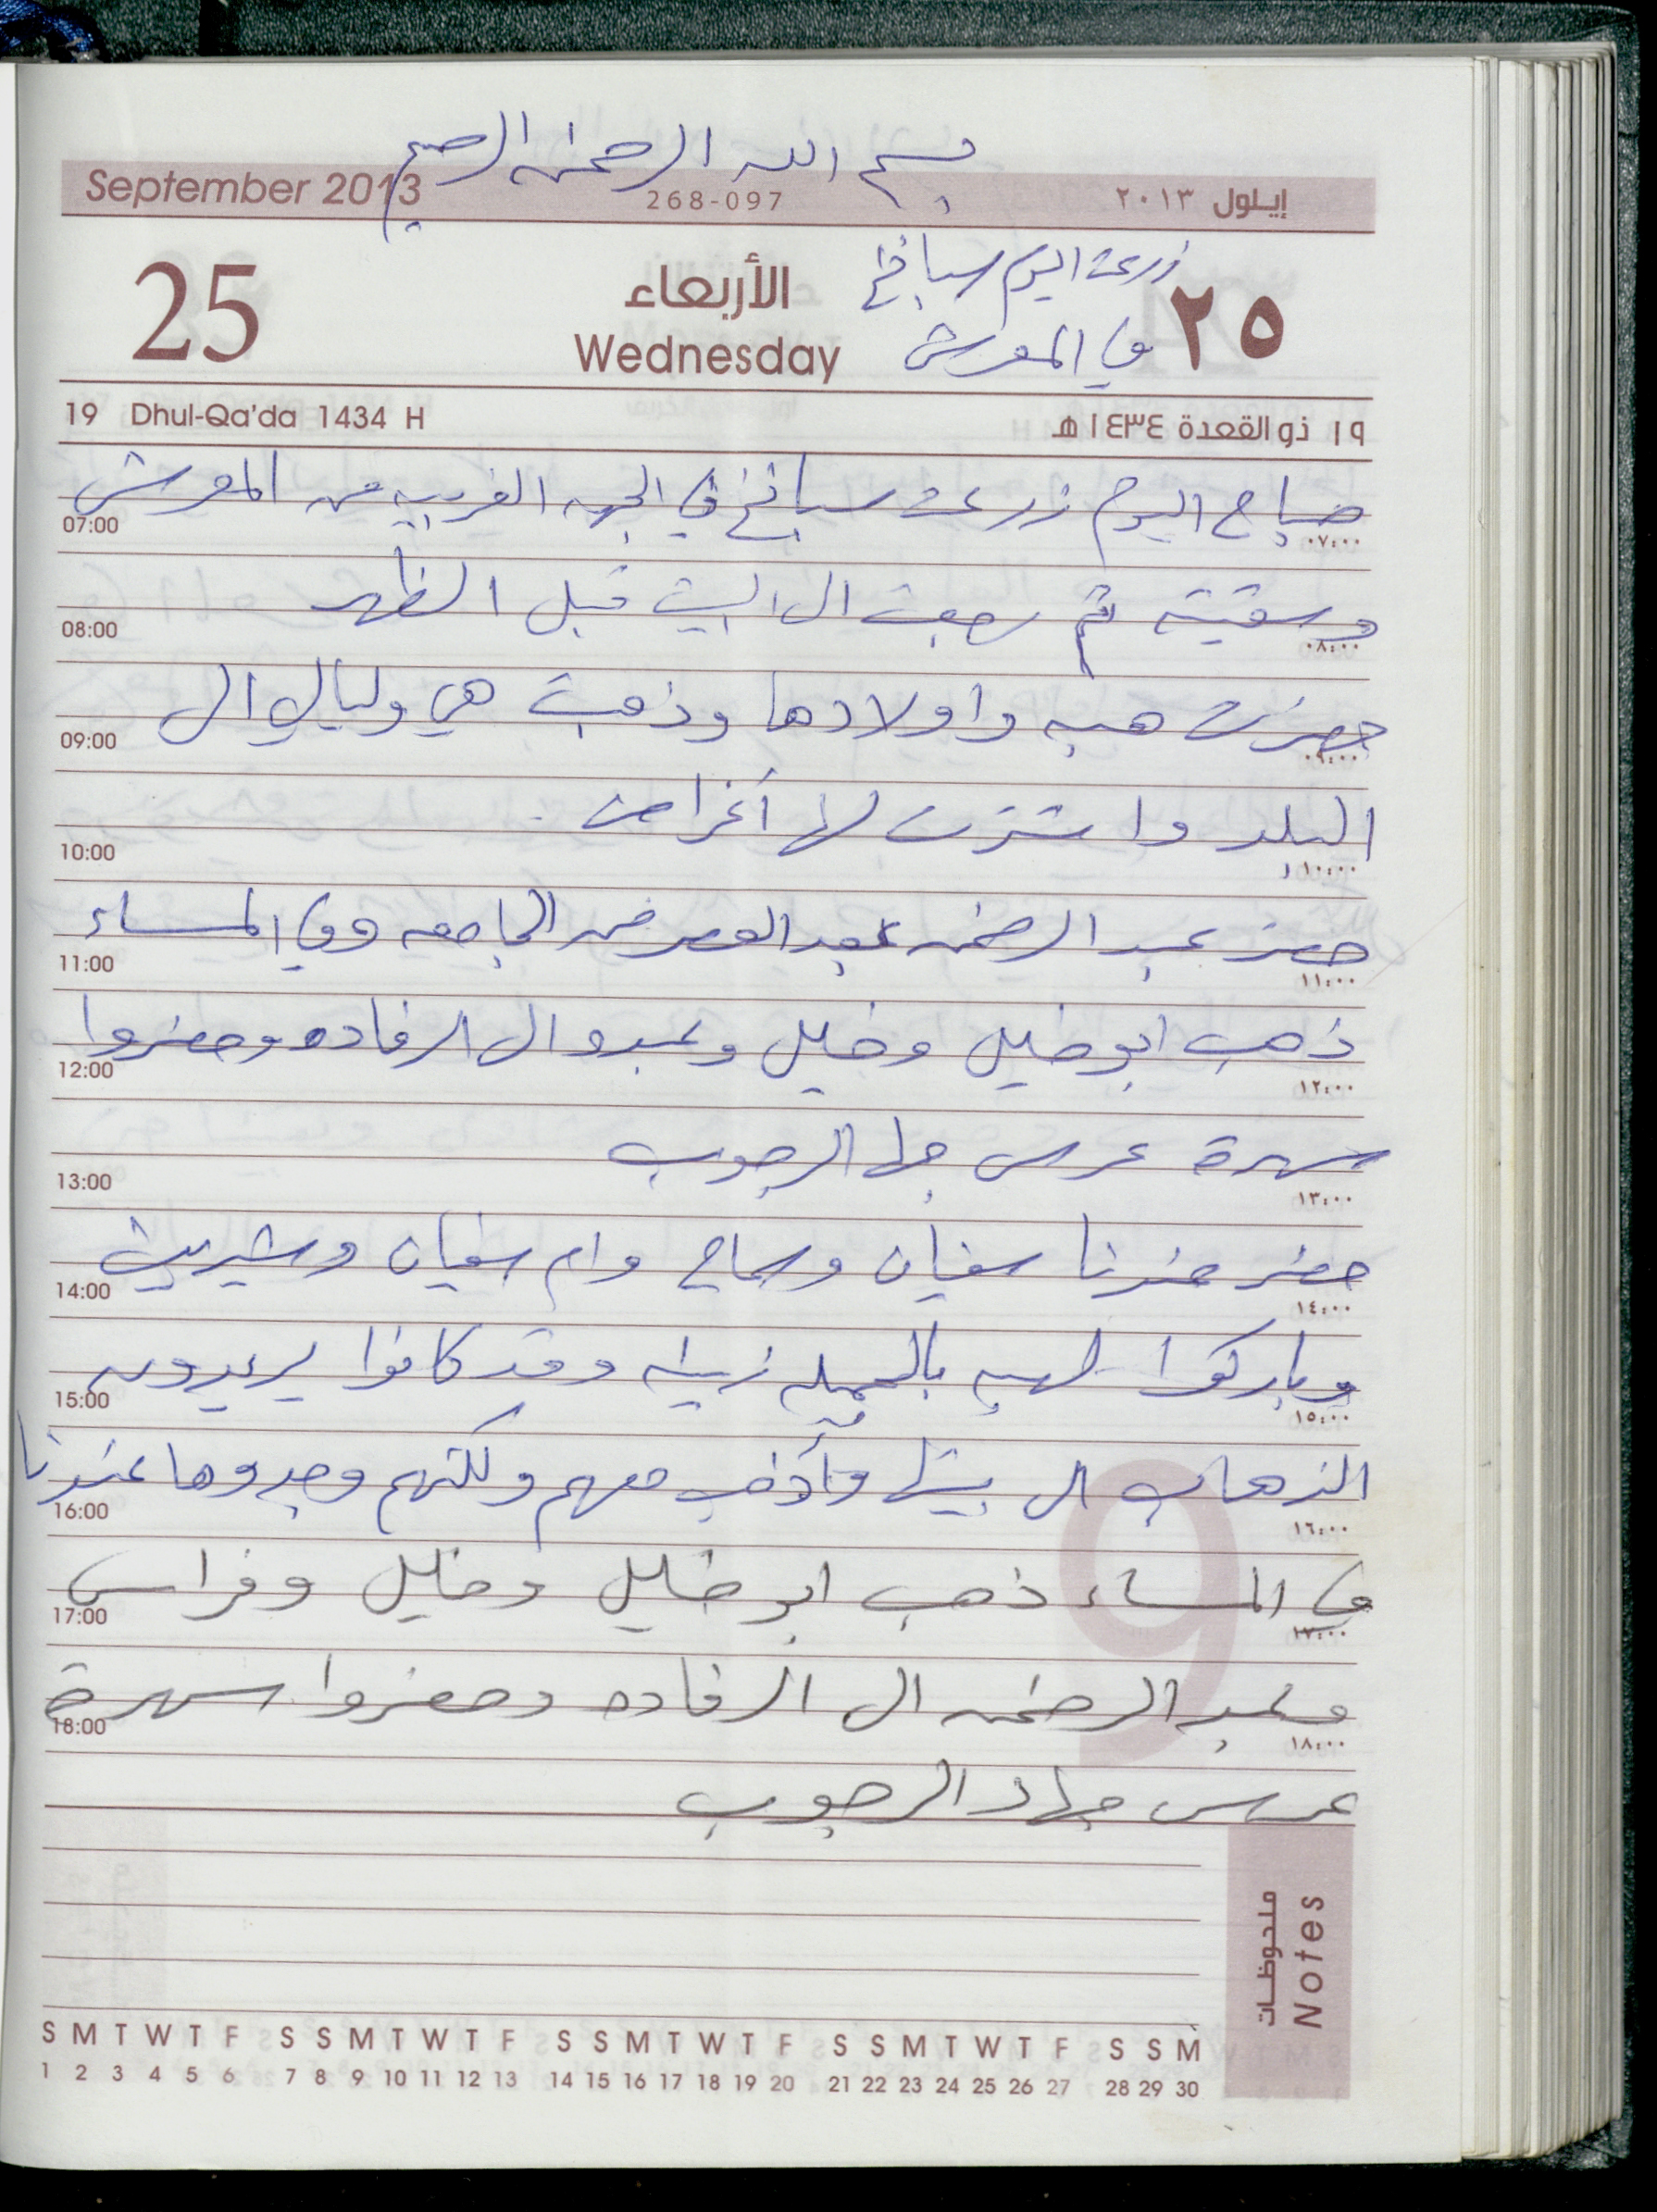 بسم الله الرحمن الرحيم
September 2013 268-097 إيلول ٢٠١٣
زرعت اليوم سبانخ
25 الأربعاء ٢٥
Wednesday في المعرش
19 Dhul-Qa'da 1434 H ١٩ ذو القعدة ١٤٣٤هـ
صباح اليوم زرعت سبانخ في الجهه الغربيه من المعرش
07:00 ٠٧:٠٠
وسقيته ثم رجعت الى البيت قبل الظهر
08:00 ٠٨:٠٠
حضرت هبه واولادها وذهبت هي وليالي الى
09:00 ٠٩:٠٠
البلد واشترت لها أغراض
10:00 ١٠:٠٠
حضر عبد الرحمن بعد العصر من الجامعه وفي المساء
11:00 ١١:٠٠
ذهب ابو خليل وخليل وعبدو الى الرفاده وحضروا
12:00 ١٢:٠٠
سهرة عرس جهاد الرجوب
13:00 ١٣:٠٠
حضر عندنا سفيان وسماح وام سفيان وشيرين
14:00 ١٤:٠٠
وباركوا لهبه زينه وقد كانوا يريدون
15:00 ١٥:٠٠
الذهاب الى بيتها وأذهب معهم ولكنهم وجدوها عندنا
16:00 ١٦:٠٠
في المساء ذهب ابو خليل وخليل وفراس
17:00 ١٧:٠٠
وعبد الرحمن الى الرفاده وحضروا سهرة
18:00 ١٨:٠٠
عرس جهاد الرجوب
ملحوظات
Notes
S M T W T F S S M T W T F S S M T W T F S S M T W T F S S M
1 2 3 4 5 6 7 8 9 10 11 12 13 14 15 16 17 18 19 20 21 22 23 24 25 26 27 28 29 30
9